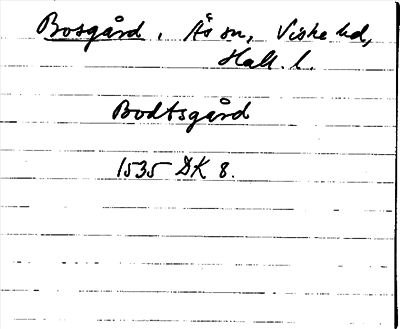 Bosgård, Ås sn, Viske hd,
Hall. l.
Bodtsgård
1535 DK 8.